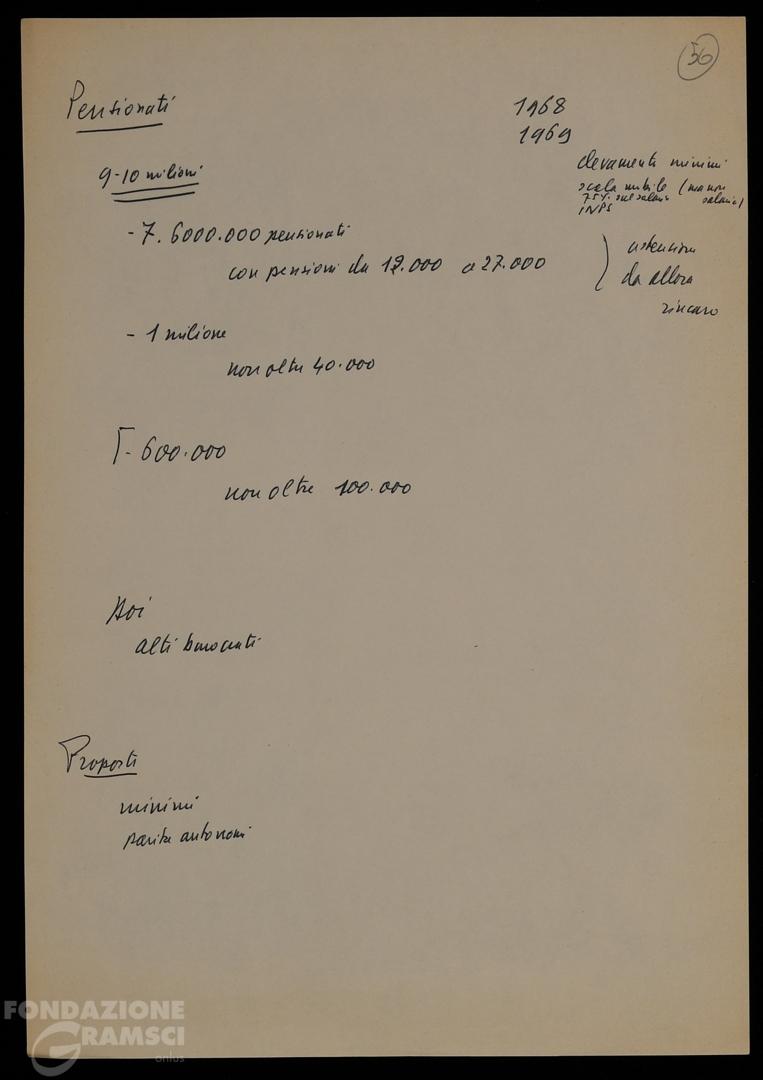 56
Pensionati
1968
1969
9-10 milioni
elevamenti minimi
scala mobile (ma non
75% sul salario salario)
INPS
- 7.6000.000 pensionati
con pensioni da 12.000 a 27.000
da allora
rincaro
- 1 milione
non oltre 40.000
- 600.000
non oltre 100.000
Poi
alti burocrati
Proposte
minimi
parità autonomi
FONDAZIONE
GRAMSCI
onlus